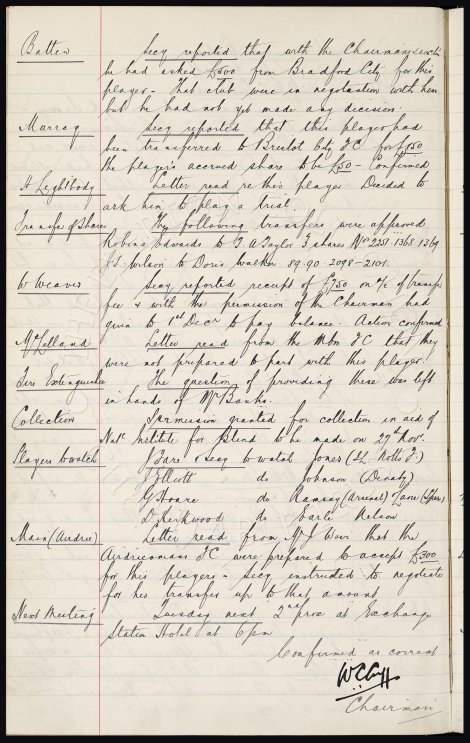 Batten Secy reported that with the Chairmans
he had asked £500 from Bradford City for this
player - That club were in negotiation with him
but he had not yet made any decision.
Murray Secy reported that this player had
been transferred to Bristol City FC for
the players accrued share to be £50 - Confirmed
H Lightbody Letter read re this player. Decided to
ask him to play a trial
Transfer of Shares The following transfers were approved
Robina Edwards to T A Taylor 3 shares Nos 2251. 1368. 1369
J.S Wilson to Doris Walker 89-90-2098-2101.
W Weaver Secy reported receipt of £750 on a/c of transfer
fee & with the permission of the Chairman had
given to 1st Decr to pay balance. Action confirmed
McLelland Letter read from the Mbro FC that they
were not prepared to part with this player.
Fire Extinguisher The question of providing these was left
in hands of Mr Banks.
Collection Permission granted for collection in aid of
Natl Institute for Blind to be made on 27th Nov.
Players to watch J Fare & Secy to watch Jones (Notts F.)
J Elliott do Johnson (Denaby)
G Hoare do Ramsay (Arsenal) Lane (Spurs)
D Kirkwood do Earle Nelson
Main (Airdrie) Letter read from Mr J Weir that the
Airdrieonians FC were prepared to accept £300
for this players - Secy instructed to negotiate
for his transfer up to that amount
Next Meeting Tuesday next 2nd prox at Exchange
Station Hotel at 6pm
Confirmed as correct
W.C. Cuff
Chairman